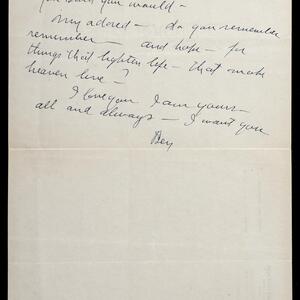 you said you would —
My adored — do you remember
remember — and hope — for
things that lighten life — that make
heaven love?
I love you I am yours —
all and always — I want you
Bey